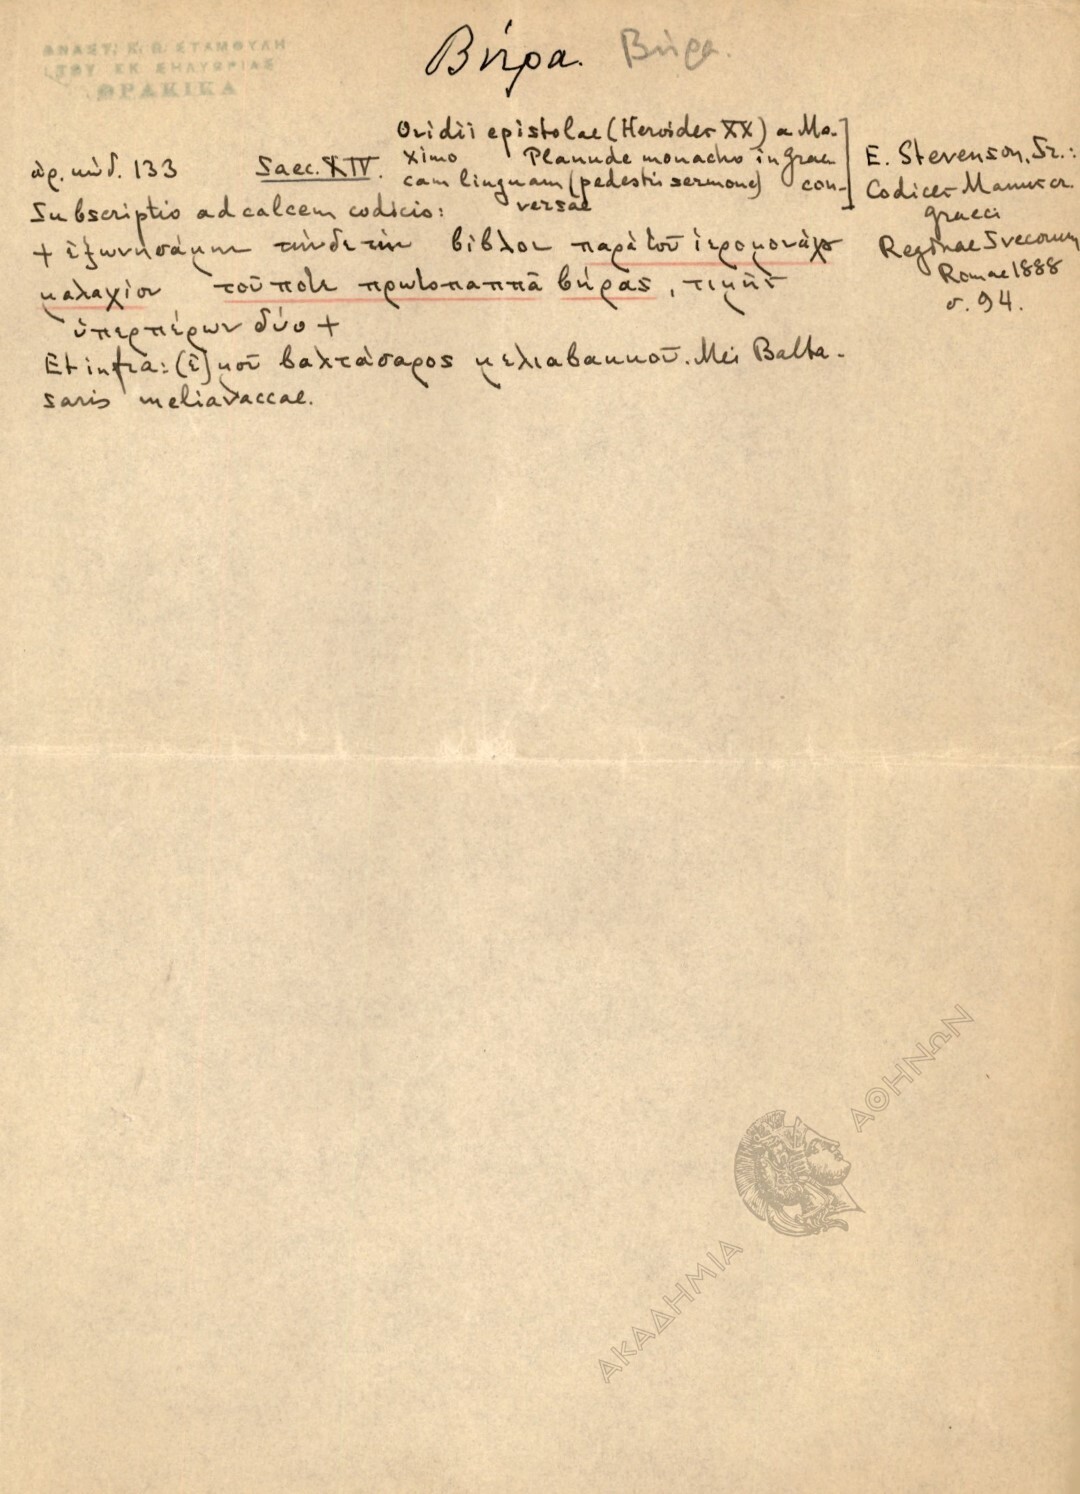 ΑΝΑΣΤ. Κ. Π. ΣΤΑΜΟΥΛΗ
ΤΟΥ ΕΚ ΣΗΛΥΒΡΙΑΣ
ΘΡΑΚΙΚΑ
Βήρα. Βήρα.
Ovidii epistolae (Heroides XX) a Ma-
ximo Planude monacho in grae-
cam linguam (pedestri sermone) con-
versae
ἀρ. κώδ. 133 Saec. XIV.
E. Stevenson, Sr.:
Codices Manuscr.
graeci
Reginae Svecorum
Romae 1888
σ. 94.
Subscriptio ad calcem codicis:
+ ἐξωνησάμην τήνδε τὴν βίβλον παρὰ τοῦ ἱερομονάχου
μαλαχίου τοῦ ποτε πρωτοπαππᾶ βήρας, τιμῆς
ὑπερπέρων δύο +
Et infra: (ἐ)μοῦ βαλτάσαρος μελιαβακκοῦ. Mei Balta-
saris meliavaccae.
ΑΚΑΔΗΜΙΑ ΑΘΗΝΩΝ